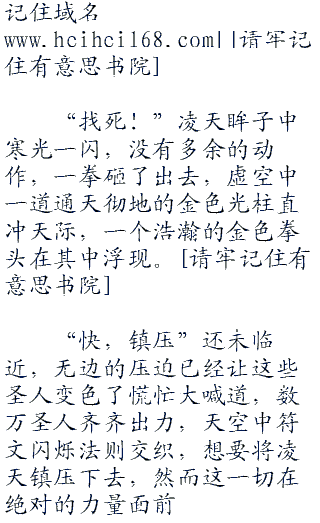 记住域名
www.hcihcil68.com||请牢记
住有意思书院]
“找死！”凌天眸子中
寒光一闪，没有多余的动
作，一拳砸了出去，虚空中
一道通天彻地的金色光柱直
冲天际，一个浩瀚的金色拳
头在其中浮现。[请牢记住有
意思书院]
“快，镇压”还未临
近，无边的压迫已经让这些
圣人变色了慌忙大喊道，数
万圣人齐齐出力，天空中符
文闪烁法则交织，想要将凌
天镇压下去，然而这一切在
绝对的力量面前